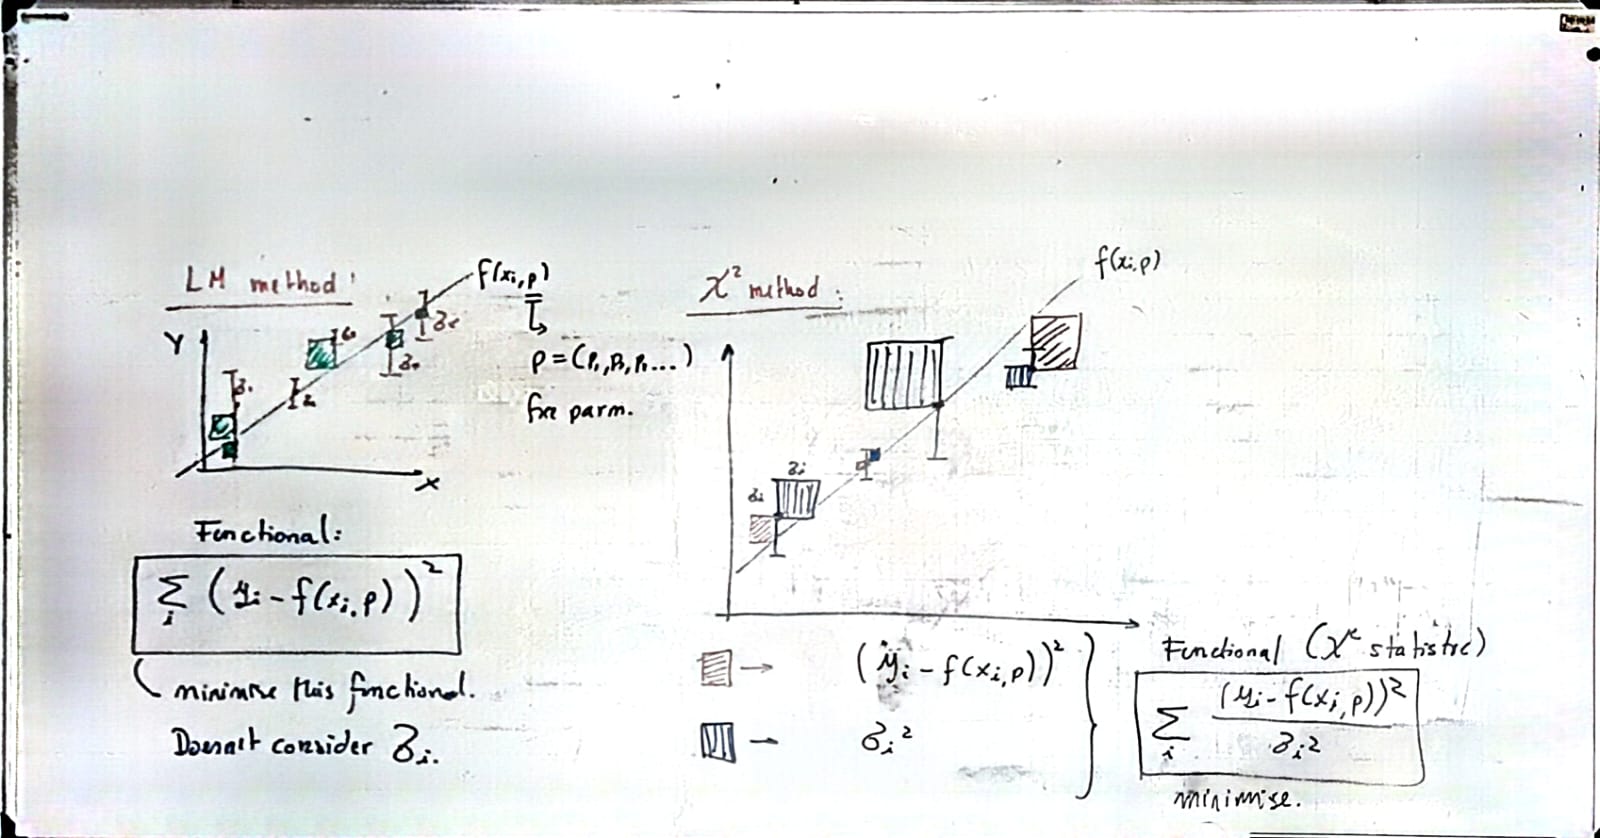 LM method:
Y
f(xi,p)
p=(P1,P2,P3...)
free parm.
X
Functional:
∑i (yi - f(xi,p))²
minimise this functional.
Doesn't consider σi.
χ² method:
f(xi,p)
σi
σi
→ (yi - f(xi,p))²
→ σi²
Functional (χ² statistic)
∑i (yi - f(xi,p))² / σi²
minimise.